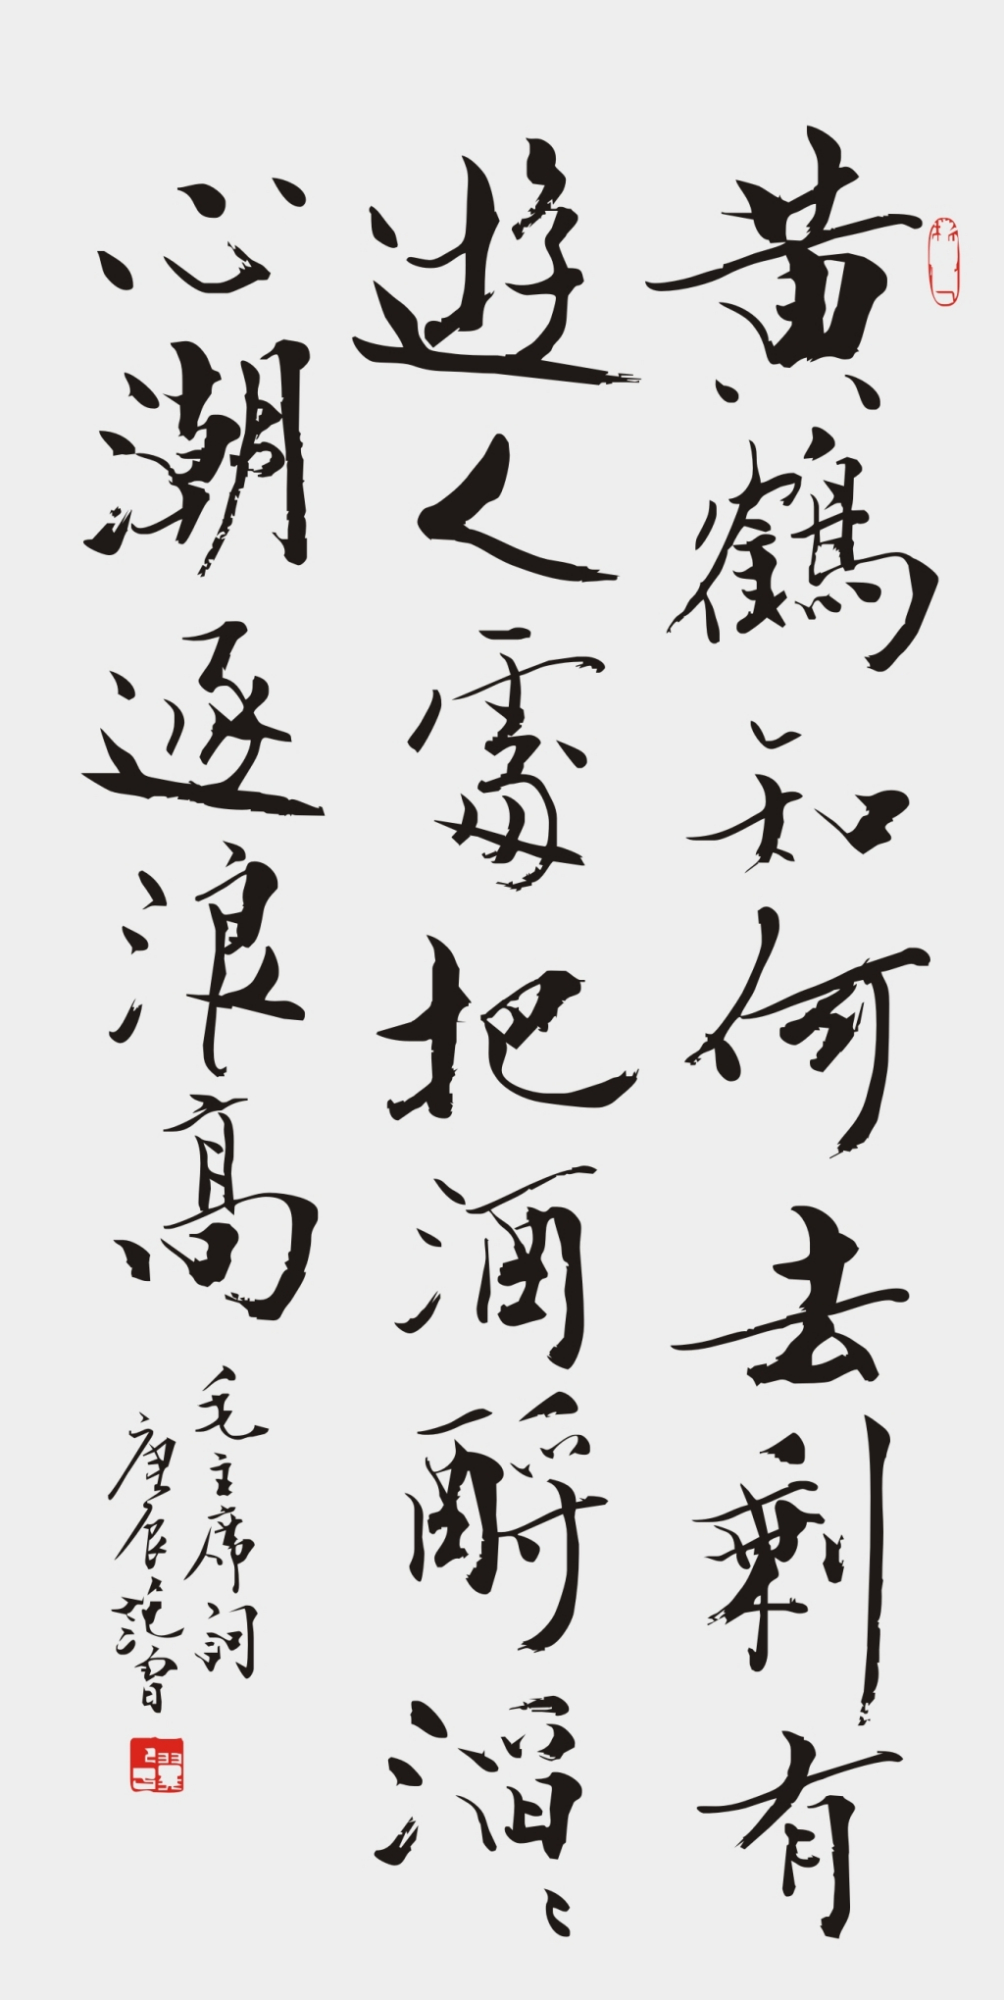 黄鶴知何去剩有
遊人處把酒酹滔〻
心潮逐浪高
毛主席詞
庚辰范曾